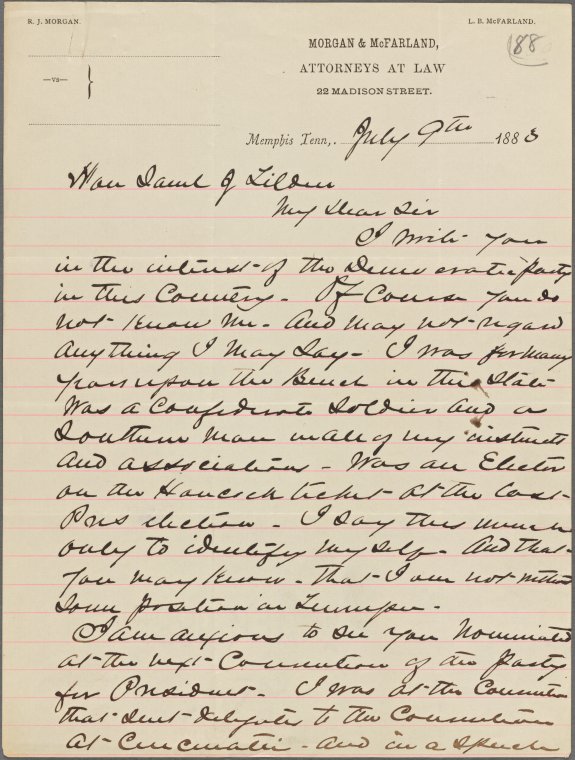 R. J. MORGAN.
L. B. McFARLAND.
188
—vs— }
MORGAN & McFARLAND,
ATTORNEYS AT LAW
22 MADISON STREET.
Memphis Tenn,. July 9th 1883
Hon Saml J Tilden
My Dear Sir
I write you
in the interest of the Democratic Party
in this Country - Of Course you do
not Know me - And may not regard
Anything I may Say - I was for many
years upon the Bench in this State
Was a Confederate Soldier And a
Southern Man in all of my instincts
And associations - Was an Elector
on the Hancock ticket at the last
Pres election - I Say this much
only to identify myself - And that
you may Know - that I am not without
Some position in Tennessee -
I am anxious to See you Nominated
at the next Convention of the Party
for President - I was at the Convention
that Sent delegates to the Convention
At Cincinatti - And in a Speech